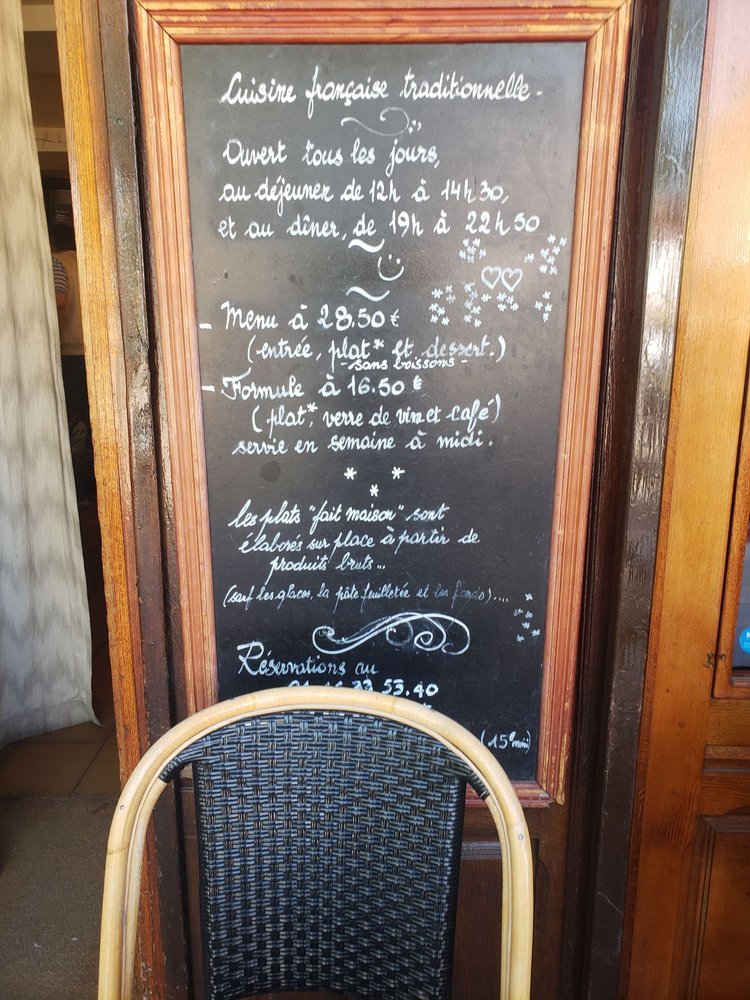 Cuisine française traditionnelle.
Ouvert tous les jours,
au déjeuner de 12h à 14h30,
et au dîner, de 19h à 22h50
- Menu à 28.50 €
(entrée, plat* et dessert.)
- sans boissons -
- Formule à 16.50 €
(plat*, verre de vin et café)
servie en semaine à midi.
* *
*
les plats "fait maison" sont
élaborés sur place à partir de
produits bruts...
(sauf les glaces, la pâte feuilletée et les fonds)....
Réservations au
33.53.40
(15e